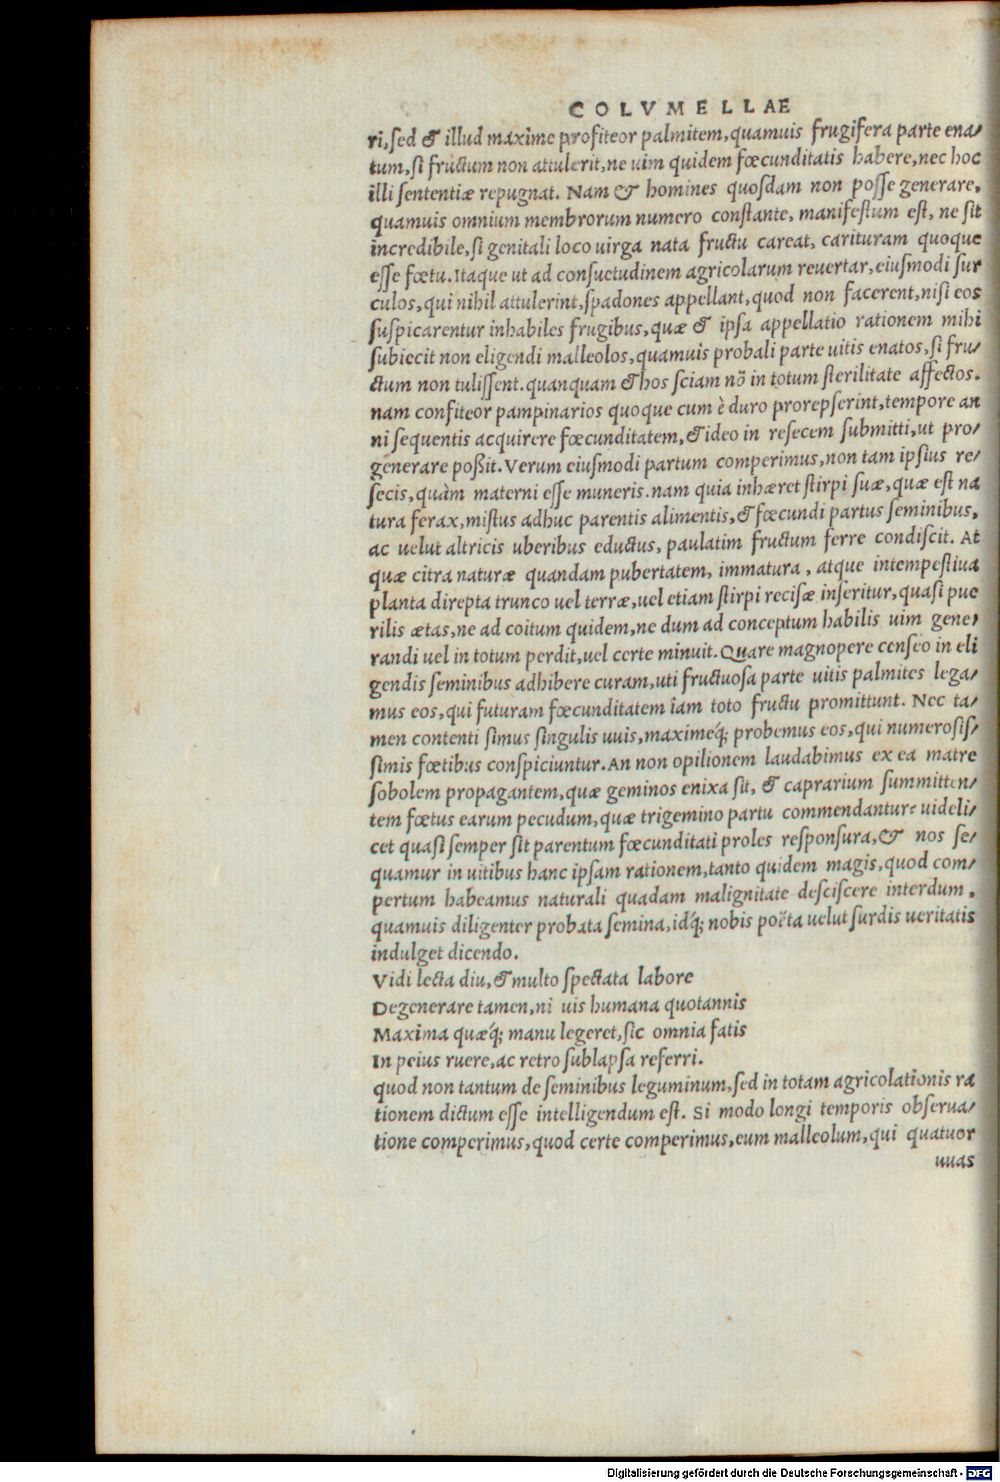 COLVMELLAE
ri, sed & illud maxime profiteor palmitem, quamuis frugifera parte ena/
tum, si fructum non attulerit, ne uim quidem fœcunditatis habere, nec hoc
illi sententiæ repugnat. Nam & homines quosdam non posse generare,
quamuis omnium membrorum numero constante, manifestum est, ne sit
incredibile, si genitali loco uirga nata fructu careat, carituram quoque
esse fœtu. Itaque ut ad consuetudinem agricolarum reuertar, eiusmodi sur
culos, qui nihil attulerint, spadones appellant, quod non facerent, nisi eos
suspicarentur inhabiles frugibus, quæ & ipsa appellatio rationem mihi
subiecit non eligendi malleolos, quamuis probali parte uitis enatos, si fru/
ctum non tulissent. quanquam & hos sciam nõ in totum sterilitate affectos.
nam confiteor pampinarios quoque cum è duro prorepserint, tempore an
ni sequentis acquirere fœcunditatem, & ideo in resecem submitti, ut pro/
generare poßit. Verum eiusmodi partum comperimus, non tam ipsius re/
secis, quàm materni esse muneris. nam quia inhæret stirpi suæ, quæ est na
tura ferax, mistus adhuc parentis alimentis, & fœcundi partus seminibus,
ac uelut altricis uberibus eductus, paulatim fructum ferre condiscit. At
quæ citra naturæ quandam pubertatem, immatura, atque intempestiua
planta direpta trunco uel terræ, uel etiam stirpi recisæ inseritur, quasi pue
rilis ætas, ne ad coitum quidem, ne dum ad conceptum habilis uim gene/
randi uel in totum perdit, uel certe minuit. Quare magnopere censeo in eli
gendis seminibus adhibere curam, uti fructuosa parte uitis palmites lega/
mus eos, qui futuram fœcunditatem iam toto fructu promittunt. Nec ta/
men contenti simus singulis uuis, maximeq́; probemus eos, qui numerosis/
simis fœtibus conspiciuntur. An non opilionem laudabimus ex ea matre
sobolem propagantem, quæ geminos enixa sit, & caprarium summitten/
tem fœtus earum pecudum, quæ trigemino partu commendantur? uideli/
cet quasi semper sit parentum fœcunditati proles responsura, & nos se/
quamur in uitibus hanc ipsam rationem, tanto quidem magis, quod com/
pertum habeamus naturali quadam malignitate desciscere interdum,
quamuis diligenter probata semina, idq́; nobis poëta uelut surdis ueritatis
indulget dicendo.
Vidi lecta diu, & multo spectata labore
Degenerare tamen, ni uis humana quotannis
Maxima quæq́; manu legeret, sic omnia fatis
In peius ruere, ac retro sublapsa referri.
quod non tantum de seminibus leguminum, sed in totam agricolationis ra
tionem dictum esse intelligendum est. Si modo longi temporis obserua/
tione comperimus, quod certe comperimus, eum malleolum, qui quatuor
uuas
Digitalisierung gefördert durch die Deutsche Forschungsgemeinschaft - DFG